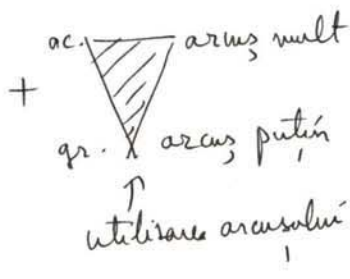 ac. arcuș mult
+
gr. arcuș puțin
utilisarea arcusului